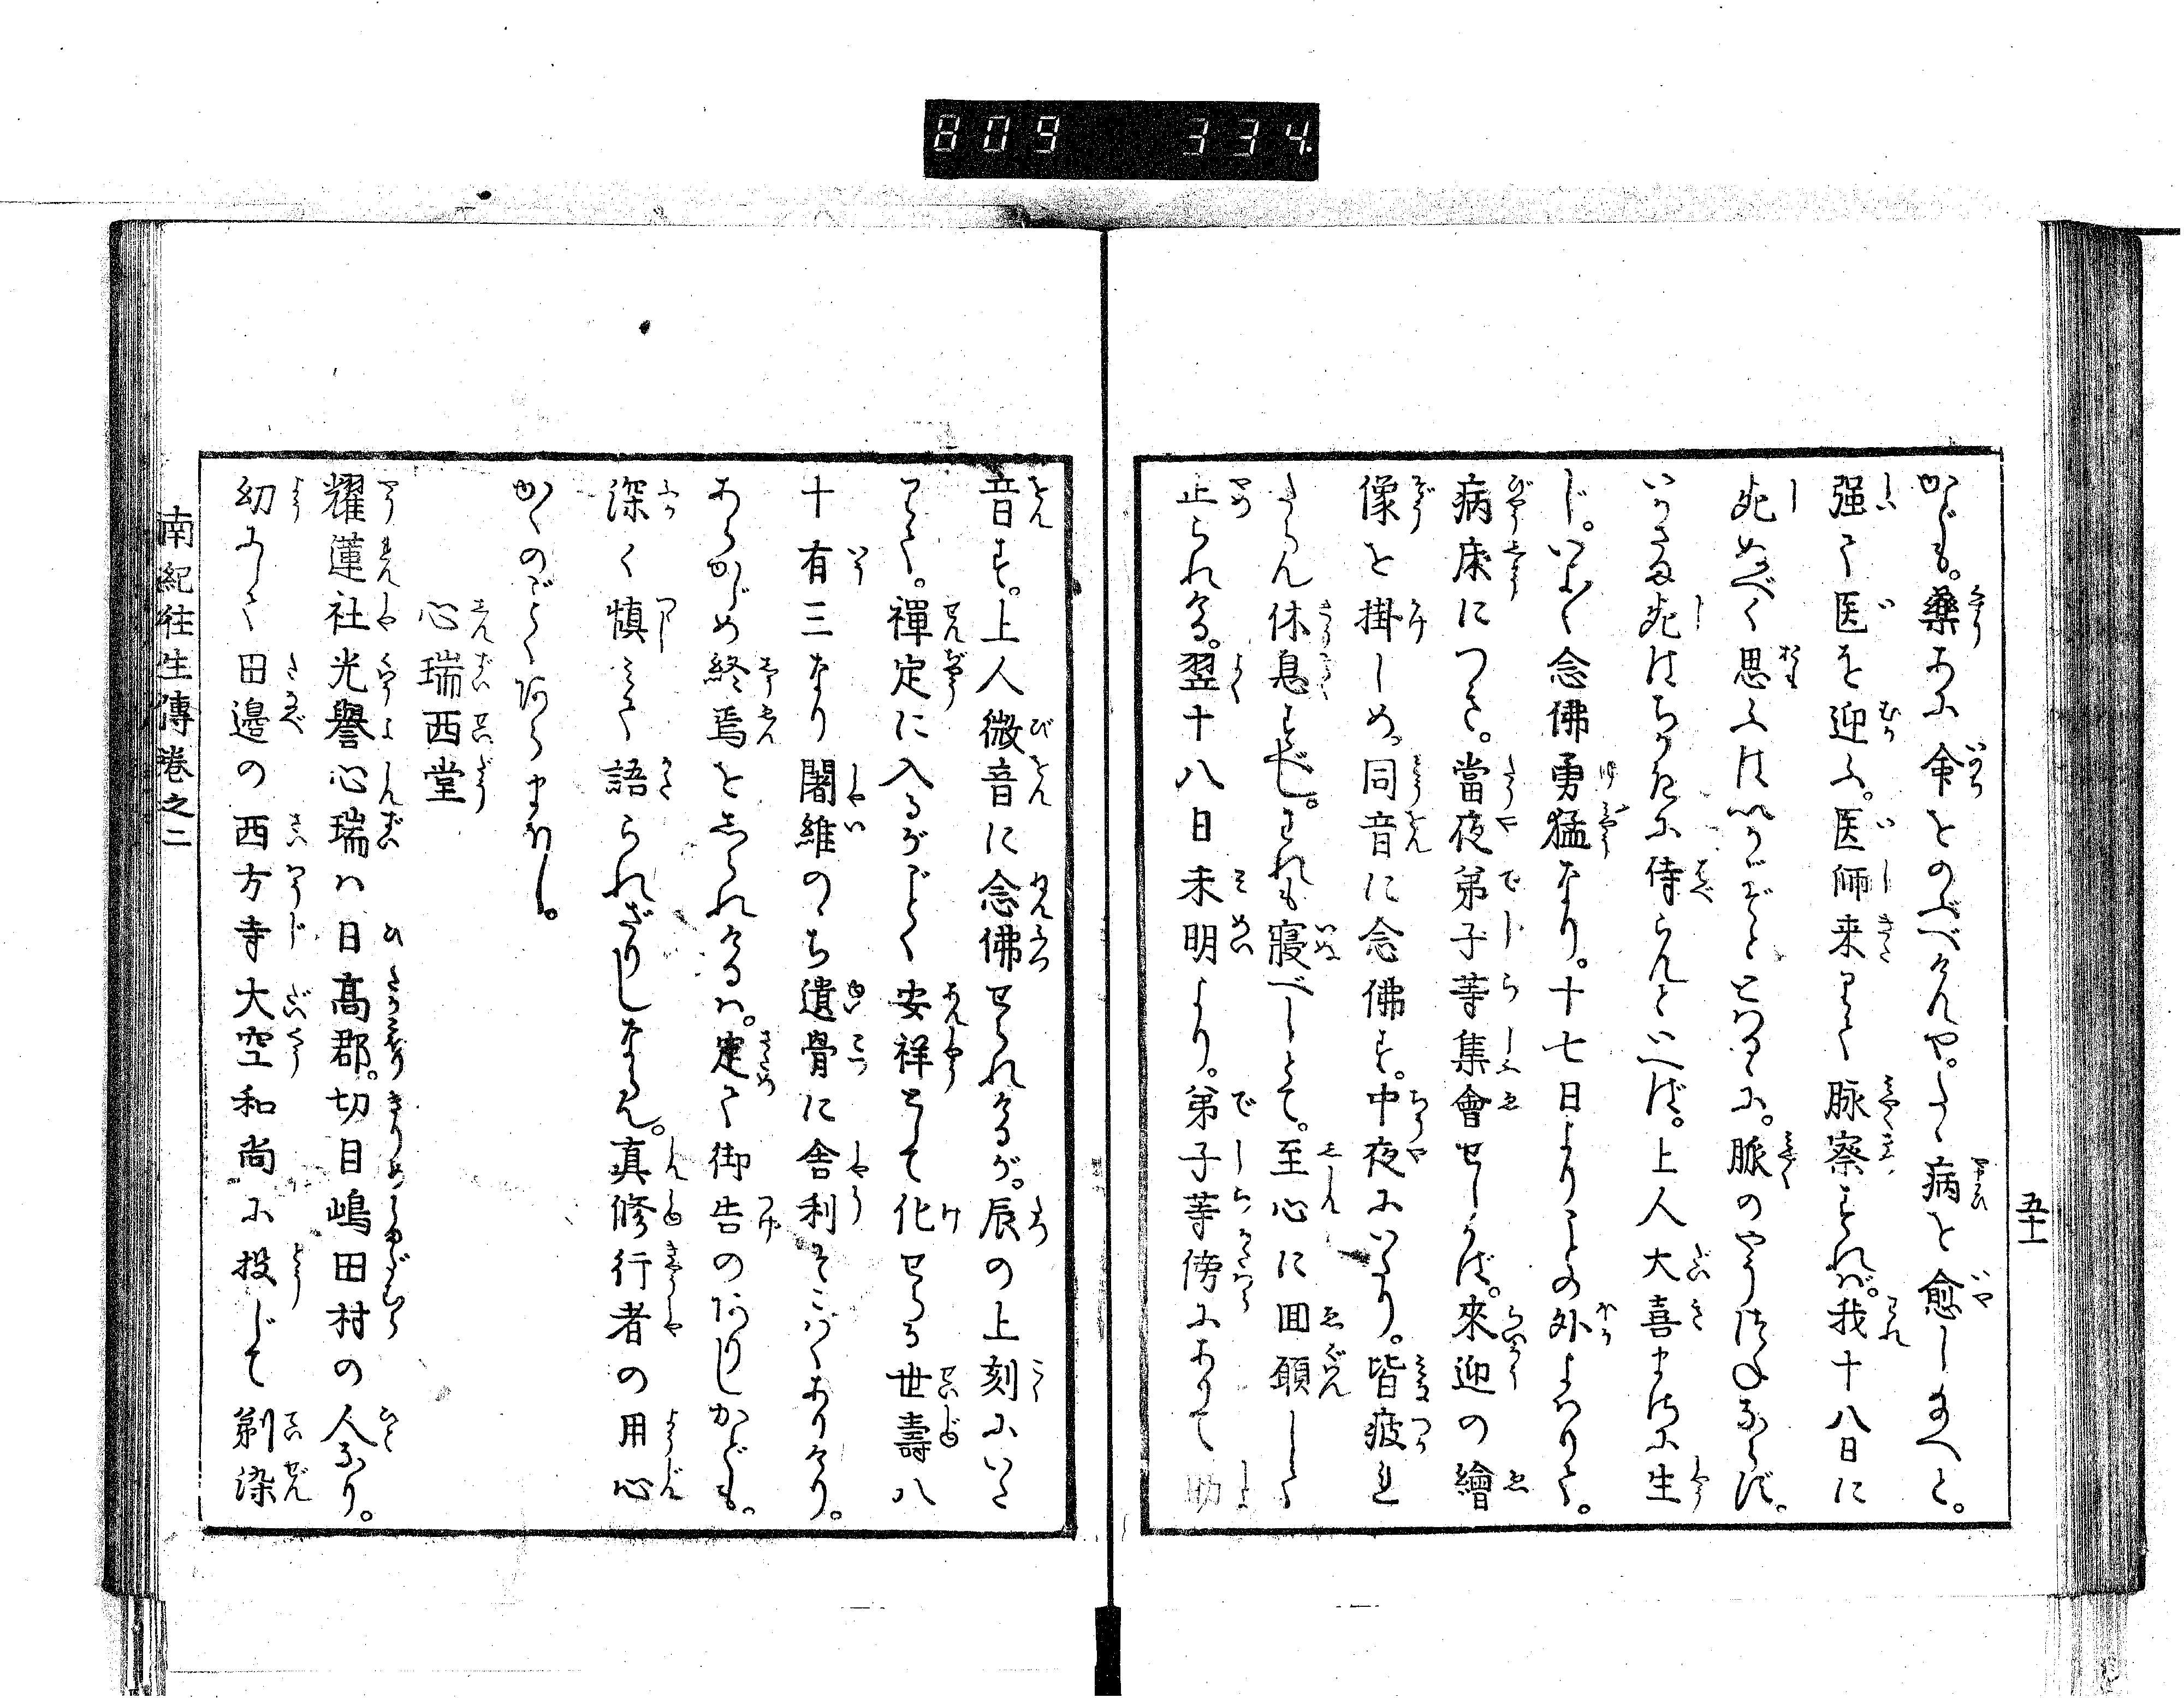 809 334
五十一
かども。藥あに命をのべべけんや。たゝ病を愈しまへと。
强て医を迎ふ。医師来りて脉察すれば。我十八日に
死ぬべく思ふはいかゞぞとはるゝに。脈のやう
死はちかきに侍らんといへば。上人大喜
じ。いよ〳〵念佛勇猛なり。十七日よりことの外よはりて。
病床につきて。當夜弟子等集會せしかば。來迎の繪
像を掛しめ。同音に念佛す。中夜にいたり。皆疲れ
たらん休息すべし。われも寢べしとて。至心に囬願して
止られける。翌十八日未明より。弟子等傍にありて助
音す。上人微音に念佛せられけるが。辰の上刻にいた
りて。禪定に入るがごとく安祥として化せらる世壽八
十有三なり闍維のゝち遺骨に舎利そこばくありけり。
あらかじめ終焉をしられけるハ。定て御告のありしかども。
深く慎みて語られざりしならん。真修行者の用心
かくのごとくあらまほし。
心瑞西堂
耀蓮社光譽心瑞ハ日髙郡。切目嶋田村の人なり。
幼にして田邉の西方寺大空和尚に投じて剃染
南紀往生傳卷之二